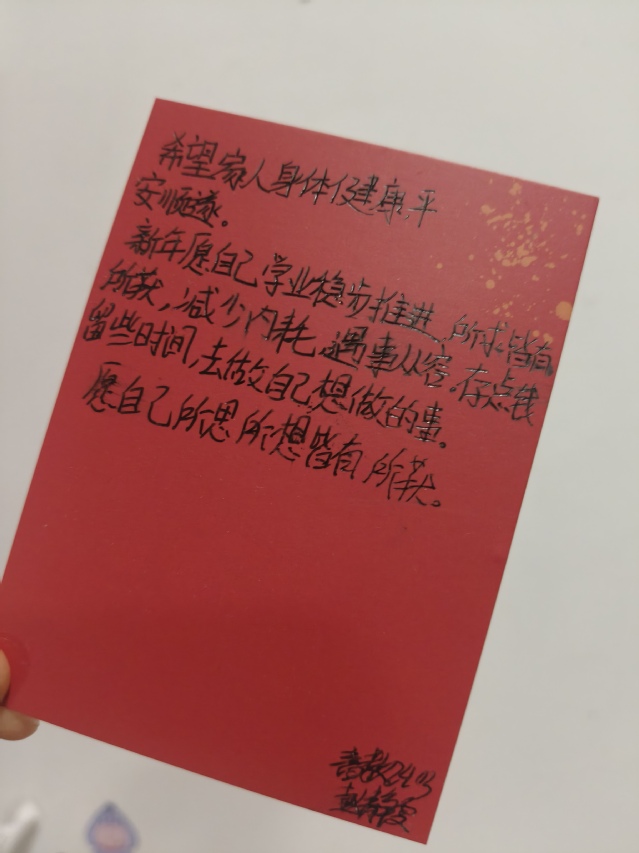 希望家人身体健康,平
安顺遂。
新年愿自己学业稳步推进、所求皆有
所获,减少内耗,遇事从容。存点钱
留些时间,去做自己想做的事。
愿自己所思所想皆有所获。
音教2403
赵静雯